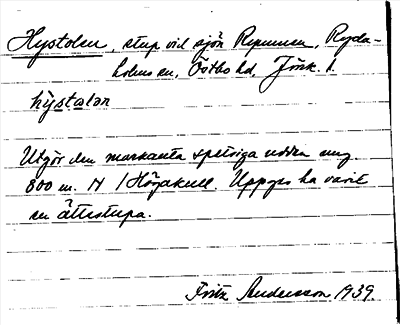 Hystolen, stup vid sjön Rymmen, Ryda-
holms sn, Östbo hd, Jönk. l.
hystalan
Utgör den markanta spetsiga udden ung.
800 m. N / Höjakull. Uppges ha varit
en ättestupa.
Fritz Andersson 1939.